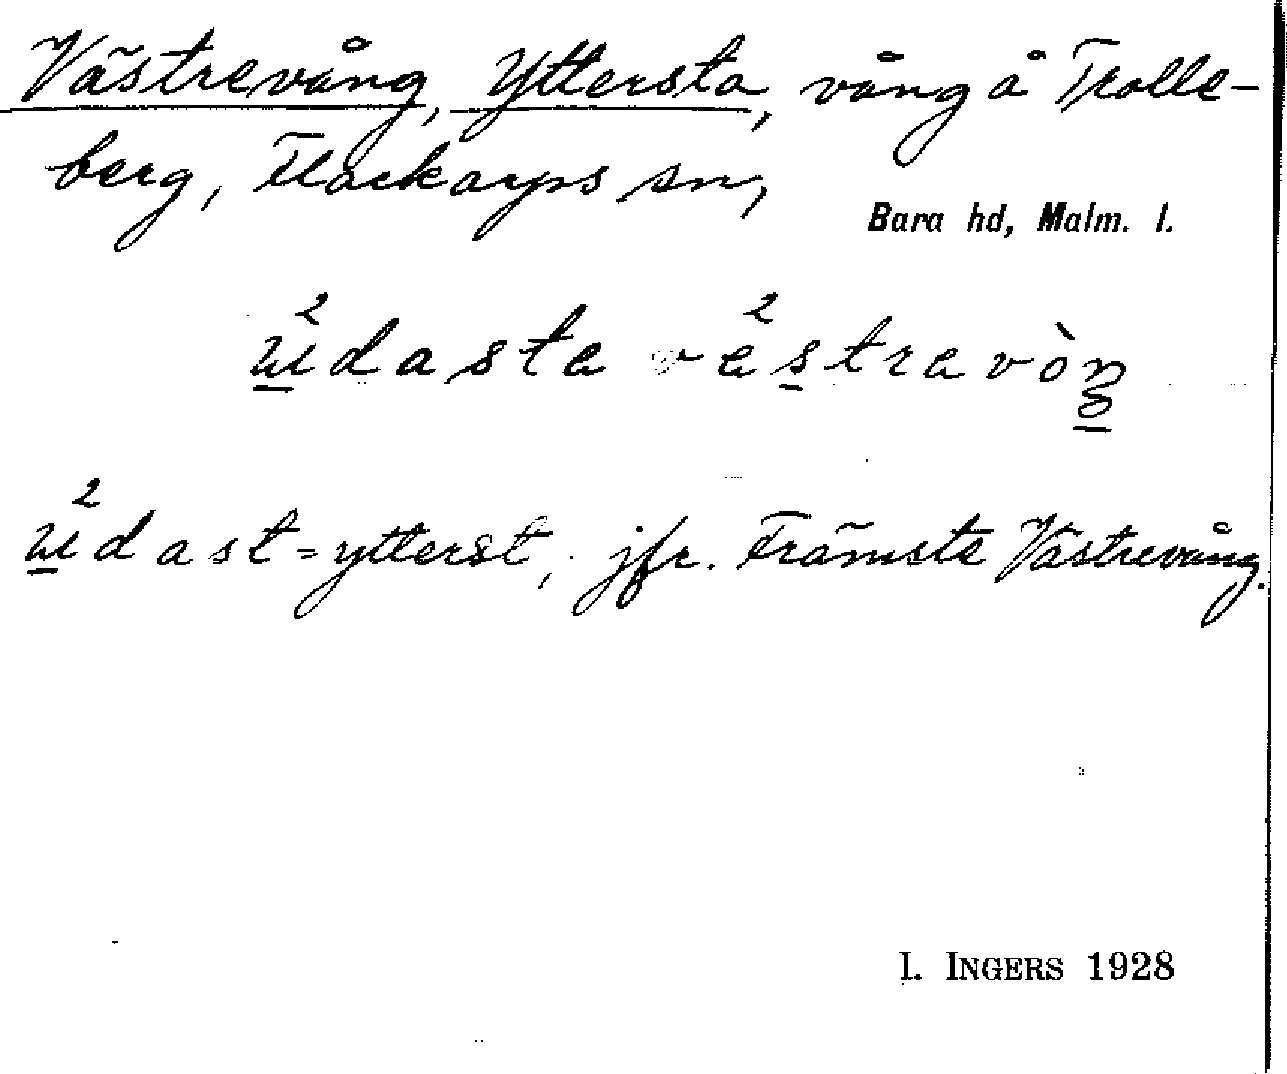 Västrevång, Yttersta, vång å Trolle-
berg, Flackarps sn,
Bara hd, Malm. l.
ùdasta vèstravòŋ
ùdast = ytterst, jfr. Främste Västrevång.
I. INGERS 1928